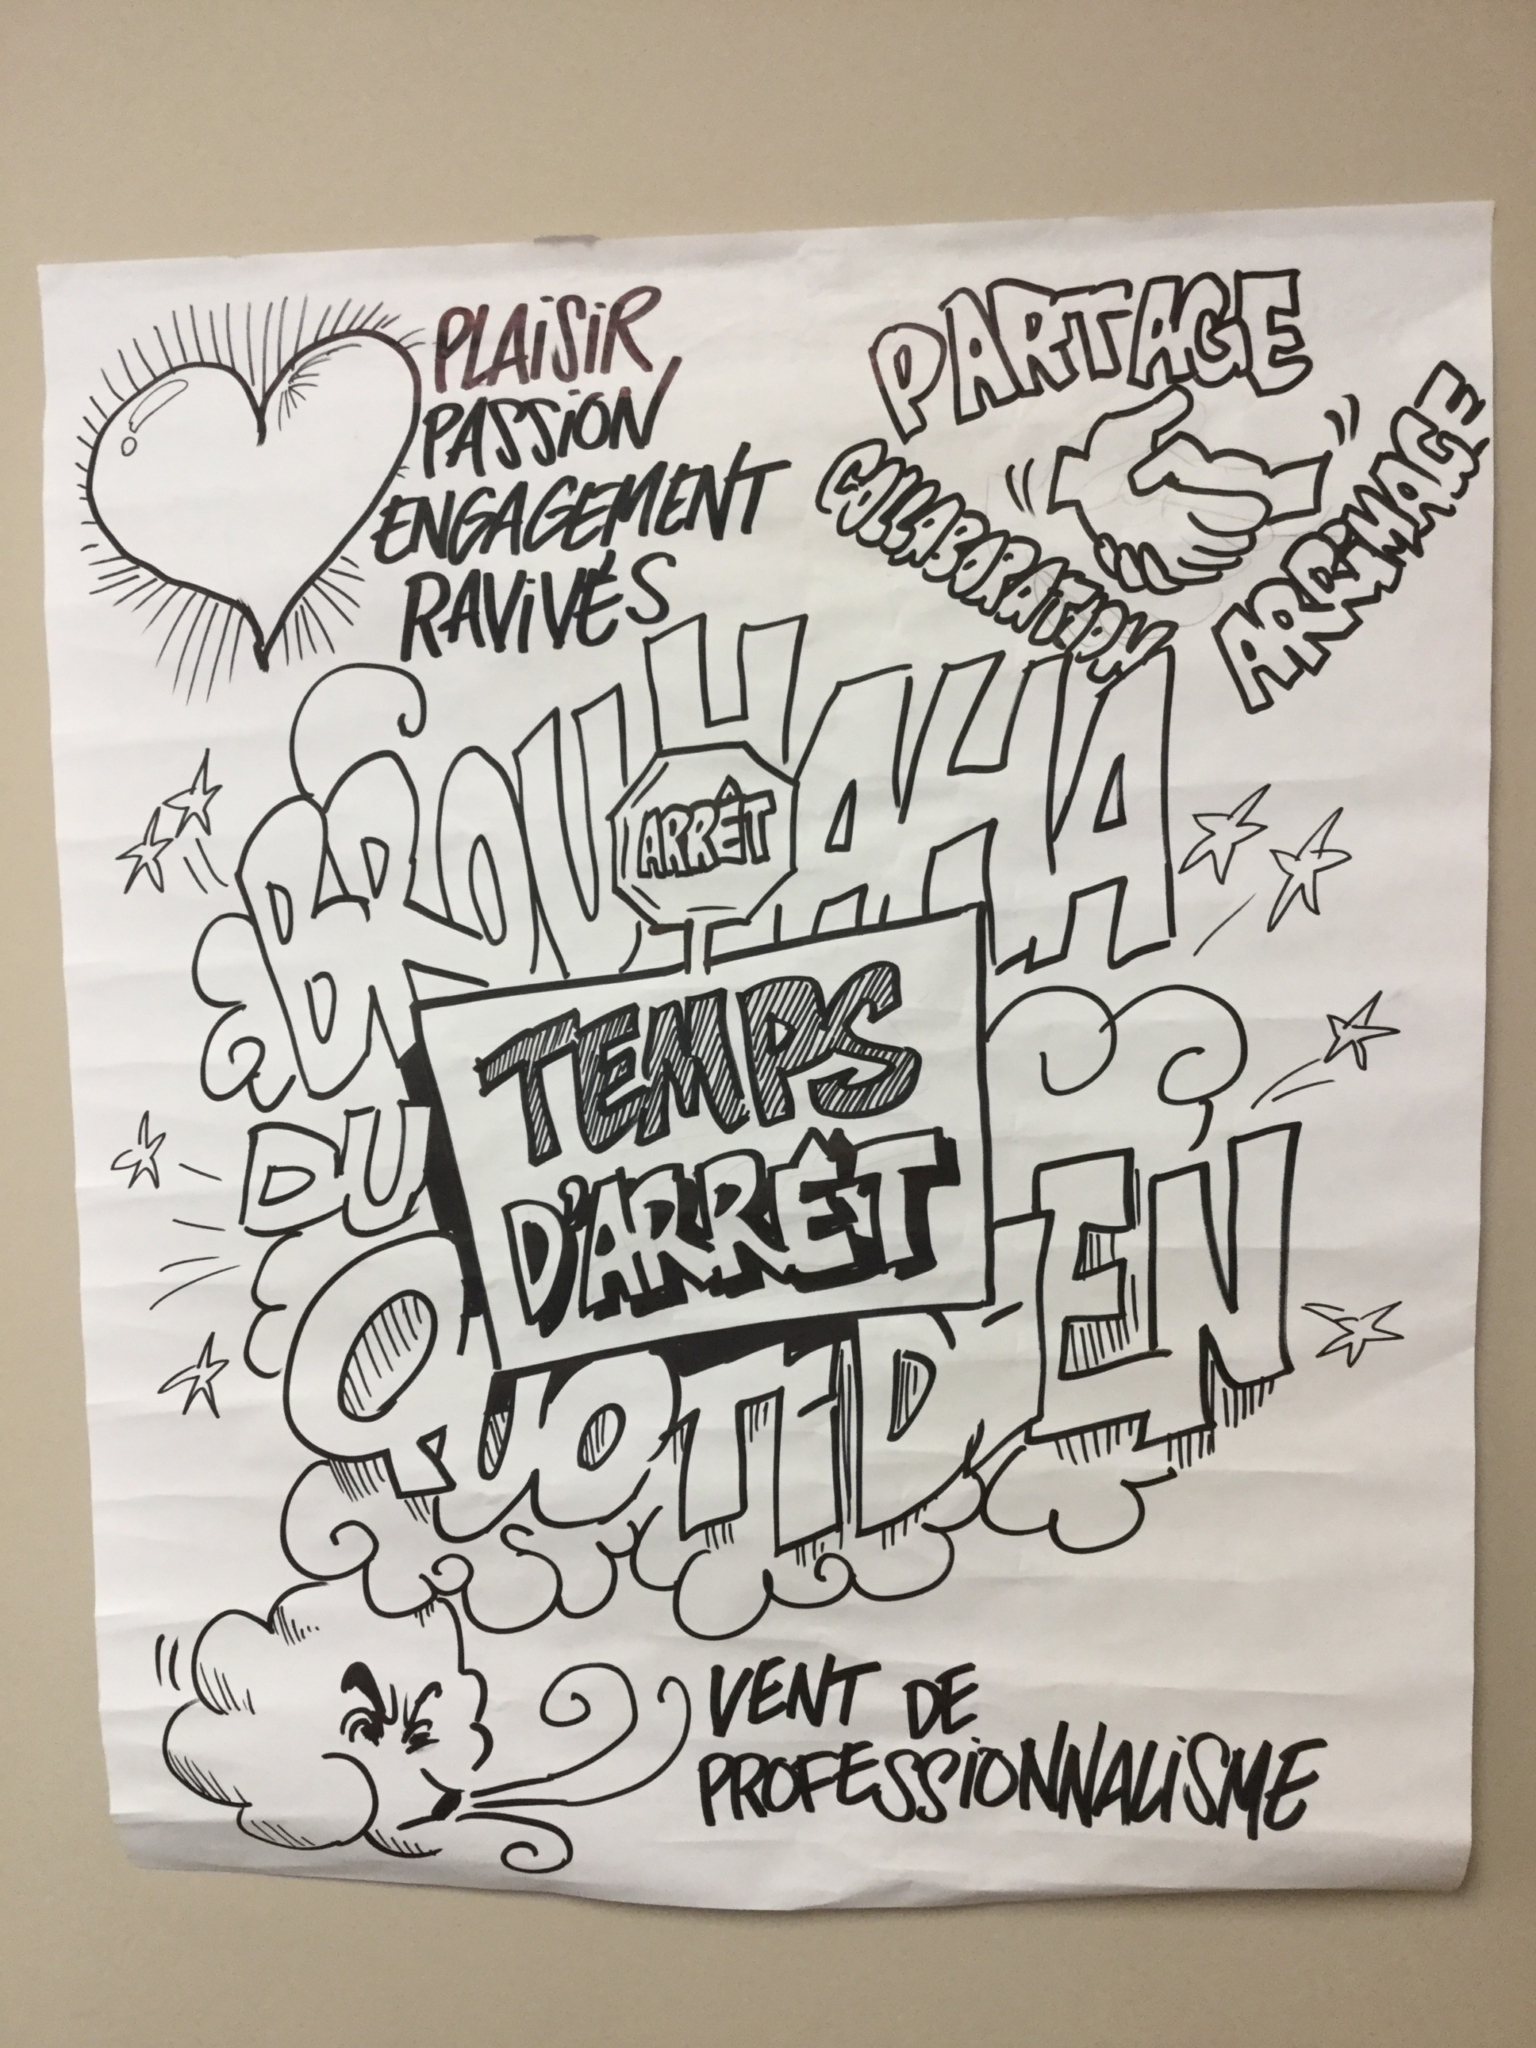 PLAISIR
PASSION
ENGAGEMENT
RAVIVÉS
PARTAGE
COLLABORATION
ARRIMAGE
BROUHAHA
ARRÊT
TEMPS
D'ARRÊT
DU
QUOTIDIEN
VENT DE
PROFESSIONNALISME